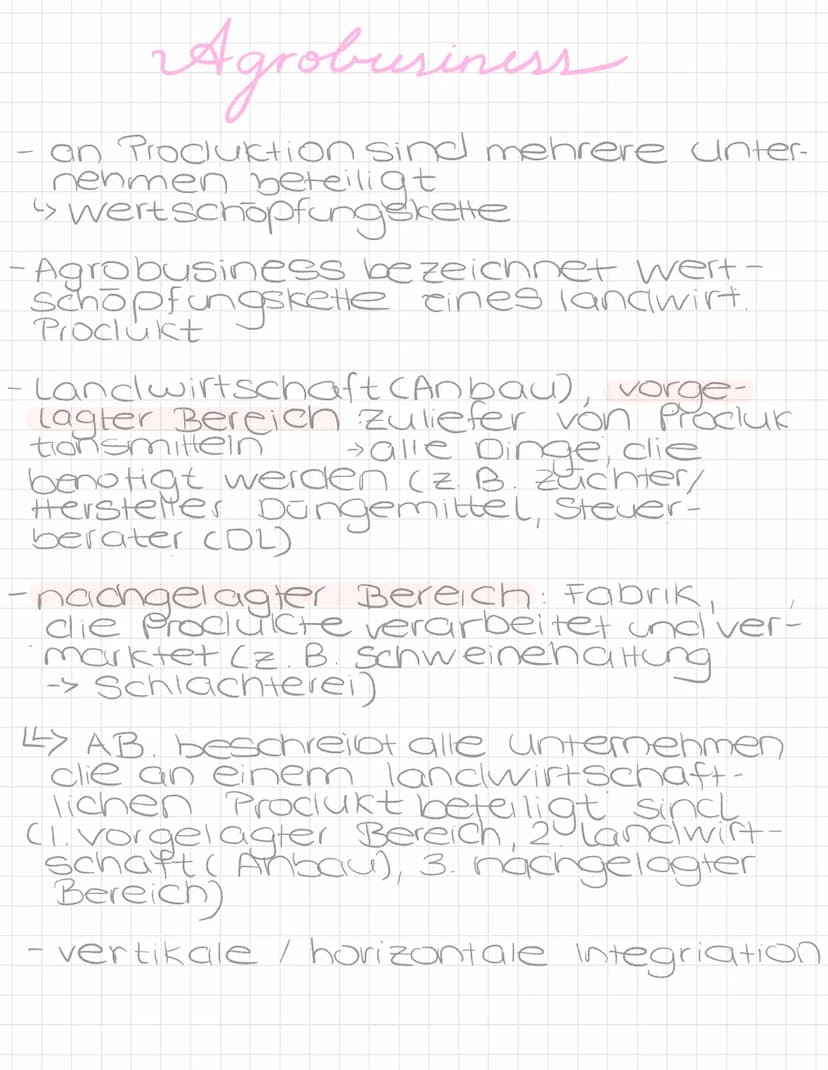 Agrobusiness
- an Produktion sind mehrere Unter-
nehmen beteiligt
↳ Wertschöpfungskette
- Agrobusiness bezeichnet Wert-
schöpfungskette eines landwirt.
Produkt
- Landwirtschaft (Anbau), vorge-
lagter Bereich : Zuliefer von Produk
tionsmitteln → alle Dinge, die
benötigt werden (z. B. Züchter/
Hersteller Düngemittel, Steuer-
berater (DL)
- nachgelagter Bereich: Fabrik,
die Produkte verarbeitet und ver-
marktet (z. B. Schweinehaltung
-> Schlachterei)
↳> AB. beschreibt alle Unternehmen
die an einem landwirtschaft-
lichen Produkt beteiligt sind
(1. vorgelagter Bereich, 2. Landwirt-
schaft (Anbau), 3. nachgelagter
Bereich)
- vertikale / horizontale Integriation